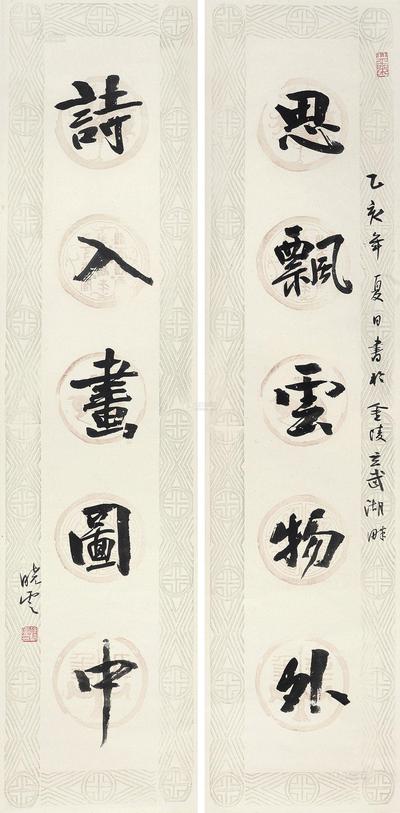 乙亥年夏日書於金陵玄武湖畔
思飄雲物外
詩入畫圖中
曉雲